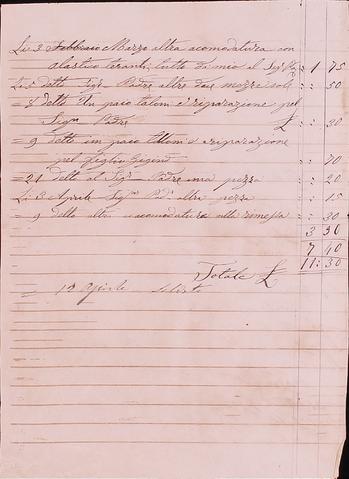 Li 3 Febbraio Marzo altra acomodatura con
elastico teranti, tutto di mio al Sigr 1 75
Li 5 detto Sigr Padre altre due mezze sole : : 50
= 8 detto Un paio taloni e riparazione pel
Sigr Padre £ : : 30
= 9 detto un paio talloni e riparazione
pel figlio Gigino : : 70
= 21 detto al Sigr Padre una pezza : : 20
Li 3 Aprile Sigr Padre altra pezza : : 15
= 9 detto altra acomodatura alla rimessa : : 30
3 90
7 40
Totale £ 11 : 30
= 12 Agosto